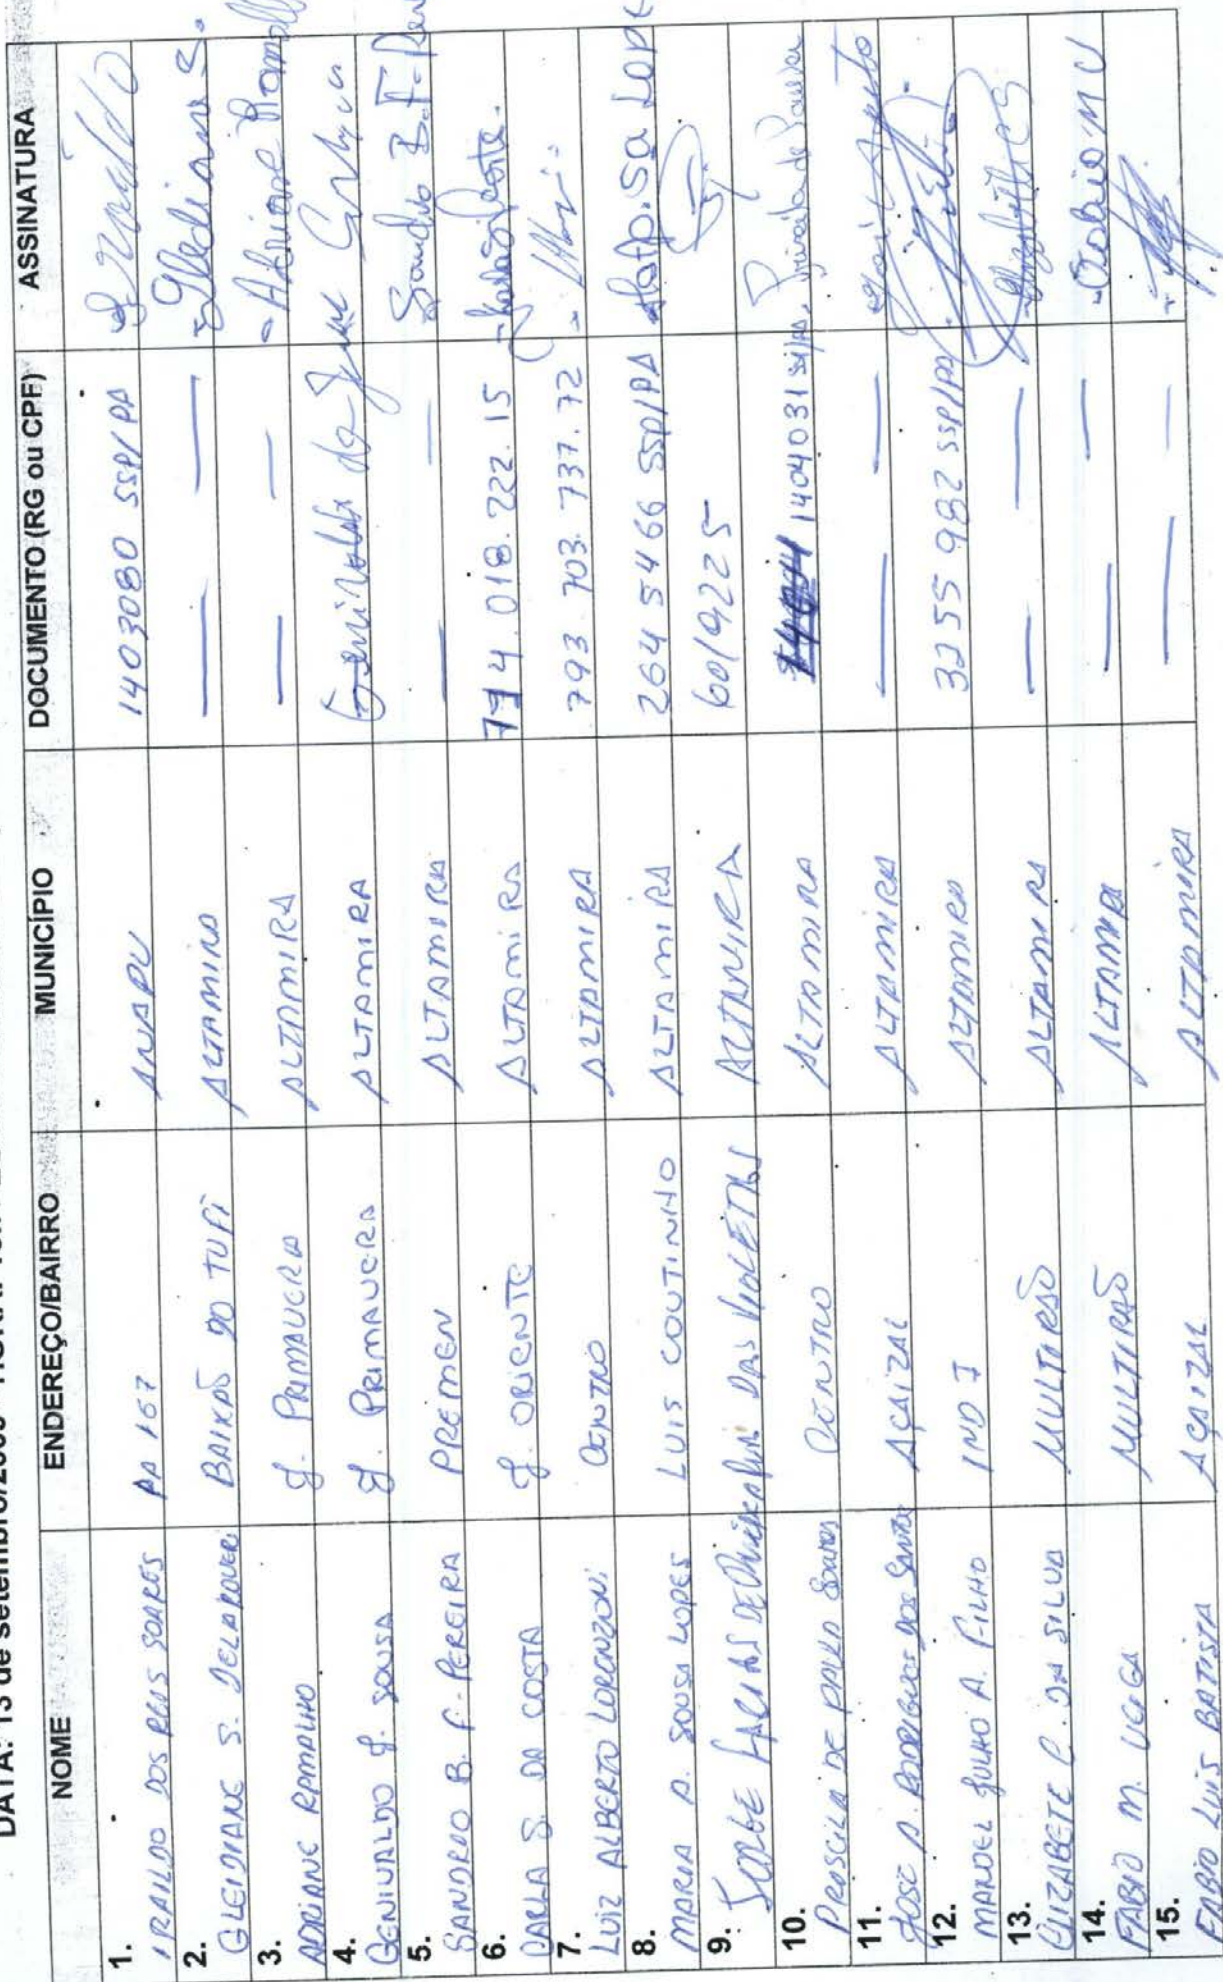 DATA: 13 de setembro/2009
NOME ENDEREÇO/BAIRRO MUNICÍPIO DOCUMENTO (RG ou CPF) ASSINATURA
1. IRAILDO DOS REIS SOARES PA 167 ANAPU 1403080 SSP/PA
2. GLEIDIANE S. BAIXÃO DO TUFI ALTAMIRA — — Gleidiane S.
3. ADRIANE RAMALHO J. PRIMAVERA ALTAMIRA — — Adriane Ramalho
4. GENIVALDO J. SOUSA J. PRIMAVERA ALTAMIRA Genivaldo de
5. SANDRO B. F. PEREIRA PREMEN ALTAMIRA — — Sandro B. F.
6. DARLA S. DA COSTA J. ORIENTE ALTAMIRA 774.018.222.15
7. LUIZ ALBERTO LORENZONI CENTRO ALTAMIRA 793.703.737.72
8. MARIA A. SOUSA LOPES LUIS COUTINHO ALTAMIRA 264 5466 SSP/PA
9. JORGE DAS VIOLETAS ALTAMIRA 6019225
10. PRISCILA DE PAULA CENTRO ALTAMIRA 1404031 Priscila de Paula
11. JOSÉ A. RODRIGUES DOS SANTOS AÇAIZAL ALTAMIRA — —
12. MANOEL JULHO A. FILHO IND 7 ALTAMIRA 3255 982 SSP/PA
13. ELIZABETE C. DA SILVA MULTIRÃO ALTAMIRA — —
14. FABIO M. MULTIRÃO ALTAMIRA — —
15. FABIO LUIS BATISTA AÇAIZAL ALTAMIRA — —